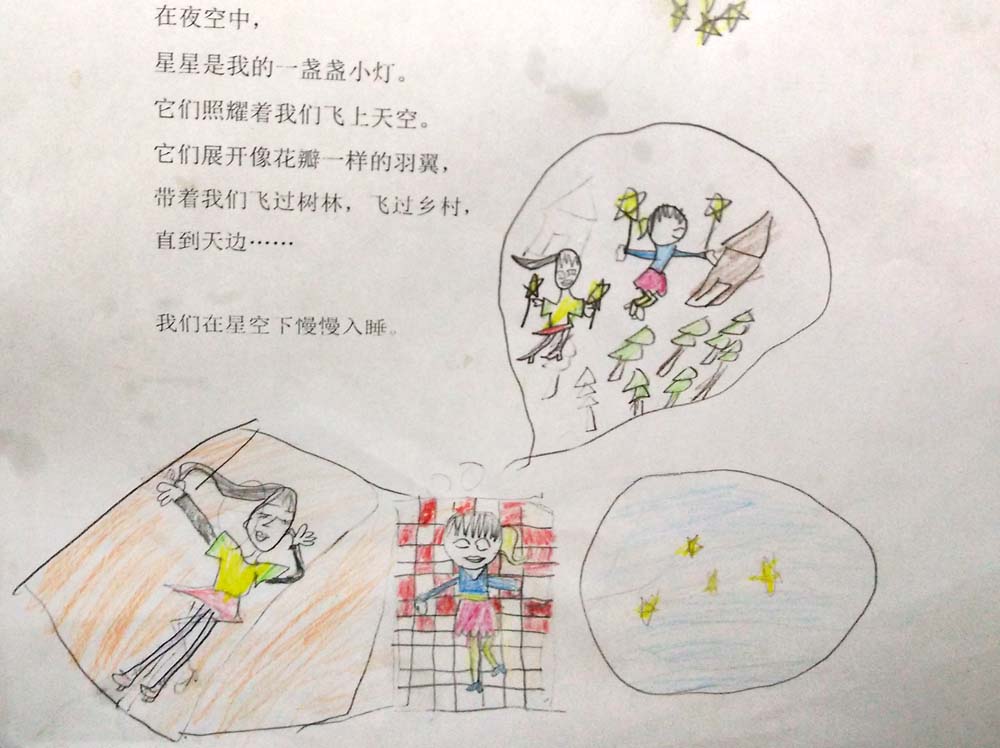 在夜空中，
星星是我的一盏盏小灯。
它们照耀着我们飞上天空。
它们展开像花瓣一样的羽翼，
带着我们飞过树林，飞过乡村，
直到天边……
我们在星空下慢慢入睡。